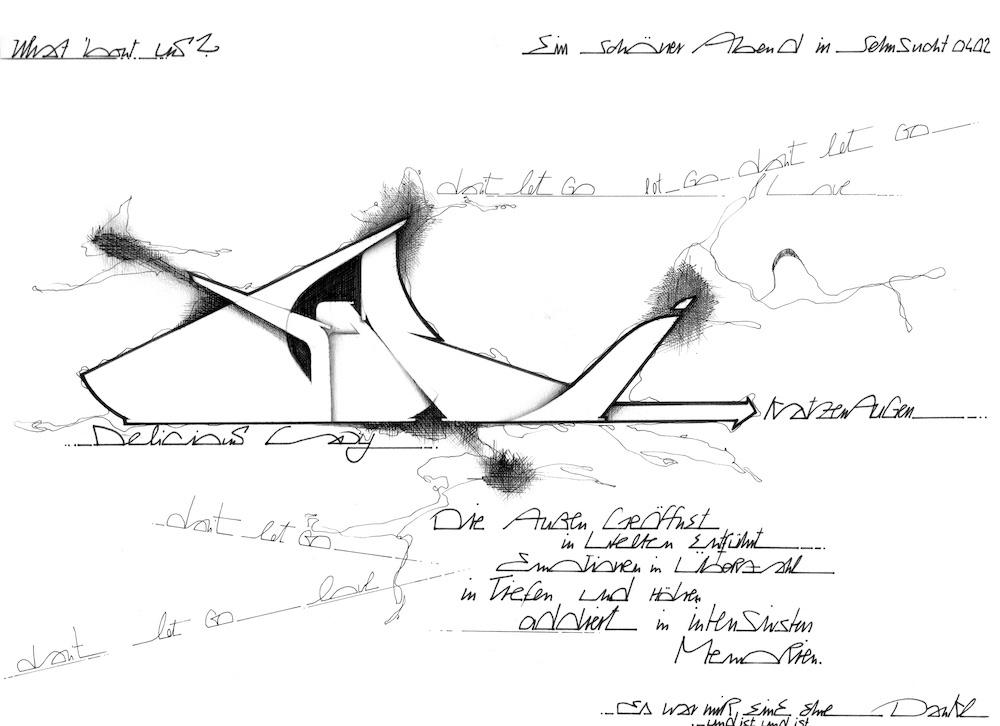 What 'bout us?
Ein schöner Abend in Sehnsucht 0402
dont let GO
dont let GO
let GO
Love
Delicious Lady
KatzenAugen
dont let GO
Die Augen Geöffnet
in Welten Entführt
Emotionen in Überzahl
in Tiefen und Höhen
addiert in intensivsten
Memorien.
love
dont let GO
Es war mir eine Ehre Danke
und ist und ist